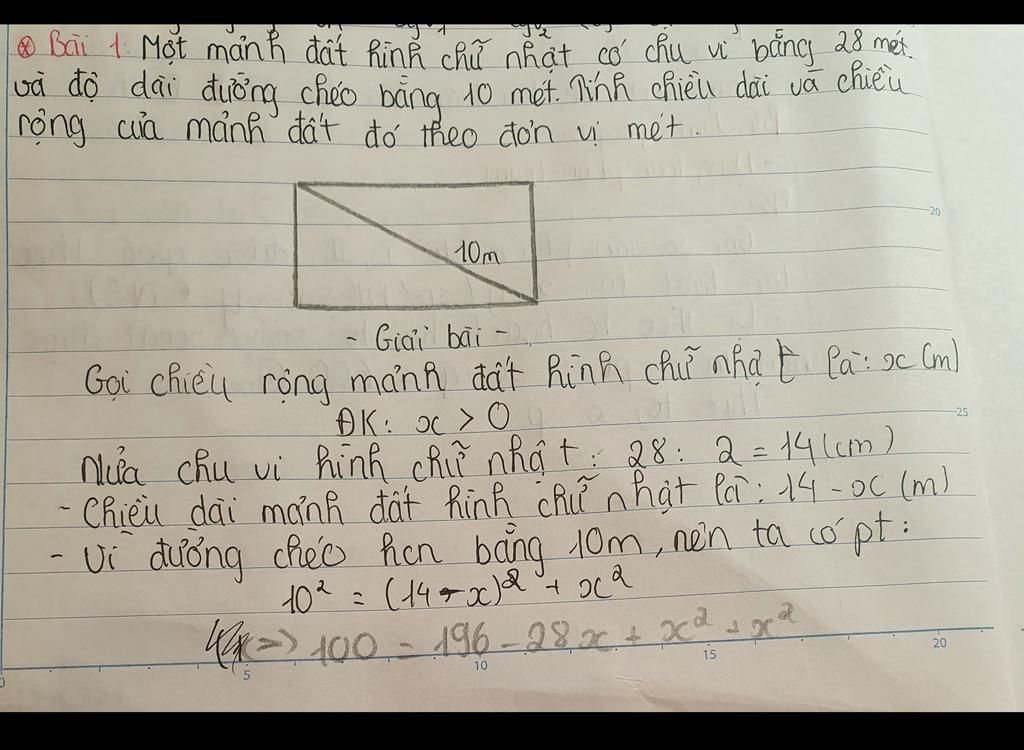 ⊛ Bài 1: Một mảnh đất hình chữ nhật có chu vi bằng 28 mét.
và độ dài đường chéo bằng 10 mét. Tính chiều dài và chiều
rộng của mảnh đất đó theo đơn vị mét.
10m
- Giải bài -
Gọi chiều rộng mảnh đất hình chữ nhật là: x (m)
ĐK: x > 0
Nửa chu vi hình chữ nhật: 28 : 2 = 14 (cm)
- Chiều dài mảnh đất hình chữ nhật là: 14 - x (m)
- Vì đường chéo hcn bằng 10m, nên ta có pt:
10² = (14 - x)² + x²
<=> 100 = 196 - 28x + x² + x²
20
25
5
10
15
20